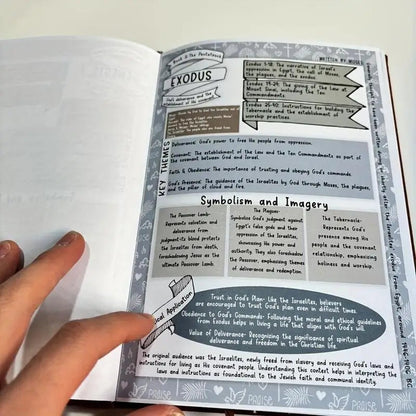 Book 2: The Pentateuch
WRITTEN BY: MOSES
EXODUS
God's deliverance and the
establishment of His covenant
Exodus 1-18: The narrative of Israel's
oppression in Egypt, the call of Moses,
the plagues, and the exodus
Exodus 19-24: The giving of the Law at
Mount Sinai, including the Ten
Commandments
Exodus 25-40: Instructions for building
the Tabernacle and the establishment of
worship practices
KEY THEMES
Deliverance: God's power to free His people from oppression.
Covenant: The establishment of the Law and the Ten Commandments as part of
the covenant between God and Israel.
Faith & Obedience: The importance of trusting and obeying God's commands.
God's Presence: The guidance of the Israelites by God through Moses, the plagues,
and the pillar of cloud and fire.
Symbolism and Imagery
The Passover Lamb-
Represents salvation and
deliverance from
judgment-its blood protects
the Israelites from death,
foreshadowing Jesus as the
ultimate Passover Lamb.
The Plagues-
Symbolize God's judgment against
Egypt's false gods and their
oppression of the Israelites,
showcasing His power and
authority. They also foreshadow
the Passover, emphasizing themes
of deliverance and redemption.
The Tabernacle-
Represents God's
presence among His
people and the covenant
relationship, emphasizing
holiness and worship.
Application
Trust in God's Plan- Like the Israelites, believers
are encouraged to trust God's plan even in difficult times.
Obedience to God's Commands- Following the moral and ethical guidelines
from Exodus helps in living a life that aligns with God's will.
Value of Deliverance- Recognizing the significance of spiritual
deliverance and freedom in the Christian life.
The original audience was the Israelites, newly freed from slavery and receiving God's laws and
instructions for living as His covenant people. Understanding this context helps in interpreting the
laws and instructions as foundational to the Jewish faith and communal identity.
PRAISE
PRAISE